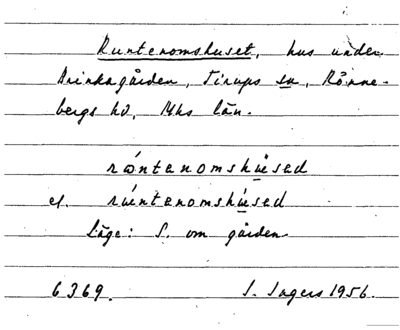 Runtenomshuset, hus under
Brinkagården, Tirups sn, Rönne-
bergs hd, Mhs län.
rωntenomshüsed
el. rúntenomshüsed
Läge: S. om gården
6369. I. Ingers 1956.